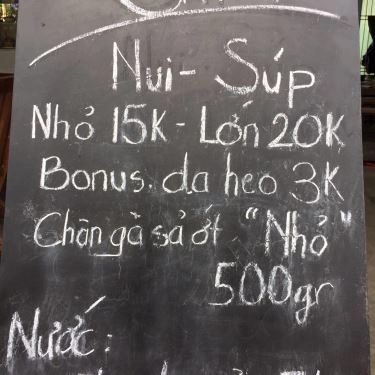 Nui - Súp
Nhỏ 15K - Lớn 20K
Bonus. da heo 3K
Chân gà sả ớt "Nhỏ"
500gr
Nước: